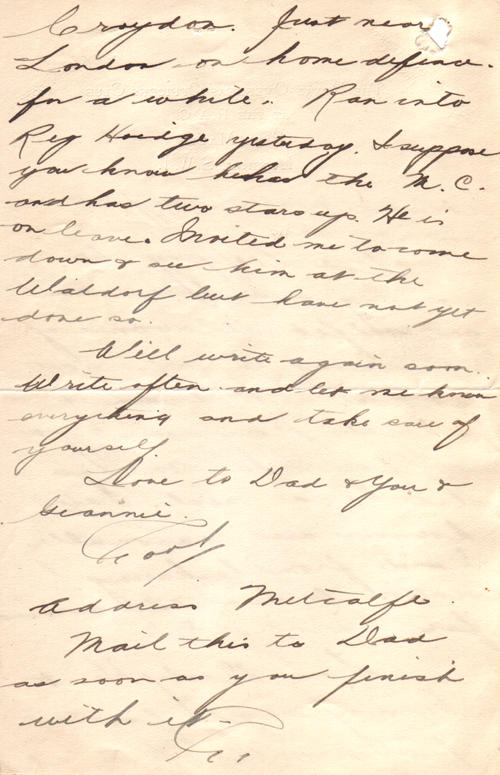 Croydon. Just near
London on home defence.
for a while. Ran into
Reg Hoidge yesterday. I suppose
you know he has the M.C.
and has two stars up. He is
on leave. Invited me to come
down & see him at the
Waldorf but have not yet
done so.
Will write again soon.
Write often and let me know
everything and take care of
yourself.
Love to Dad & You &
Jeannie.
Address Metcalfe.
Mail this to Dad
as soon as you finish
with it.